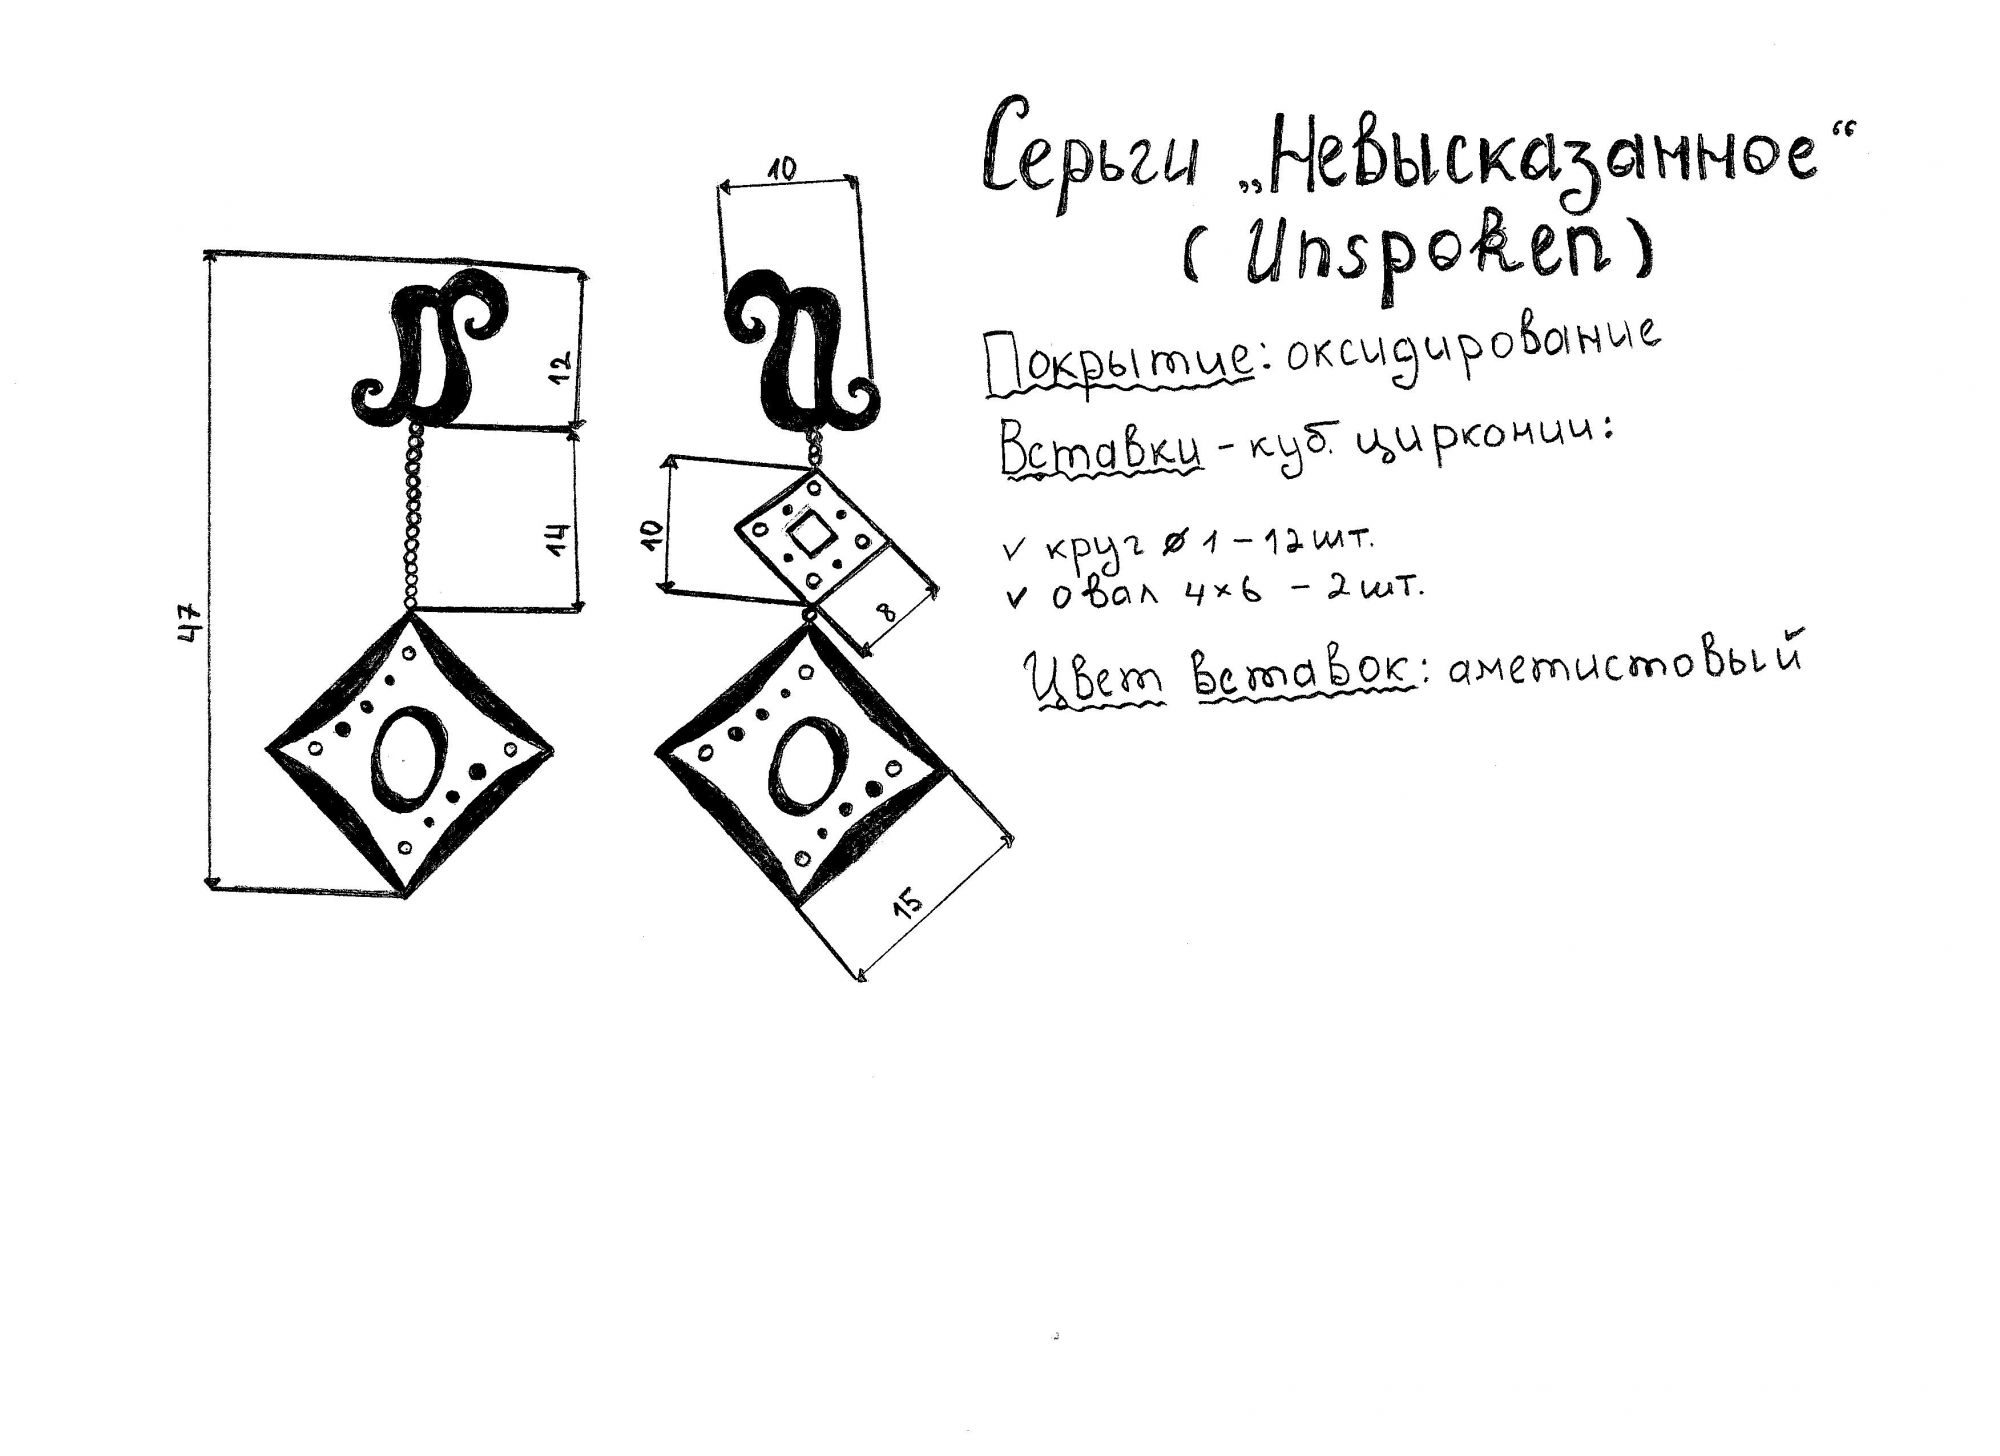 Серьги „Невысказанное“
(Unspoken)
Покрытие: оксидирование
Вставки - куб. цирконии:
✓ круг ⌀ 1 - 12 шт.
✓ овал 4×6 - 2 шт.
Цвет вставок: аметистовый
10
12
14
47
10
8
15